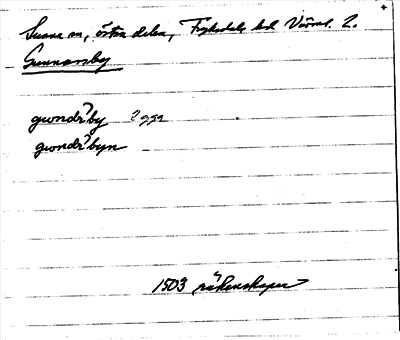 Sunne sn, östra delen, Fryksdals hd Värml. l.
Gunnarsby
gwondr?by 2 ggr
gwondr?byn
1503 räkenskaper